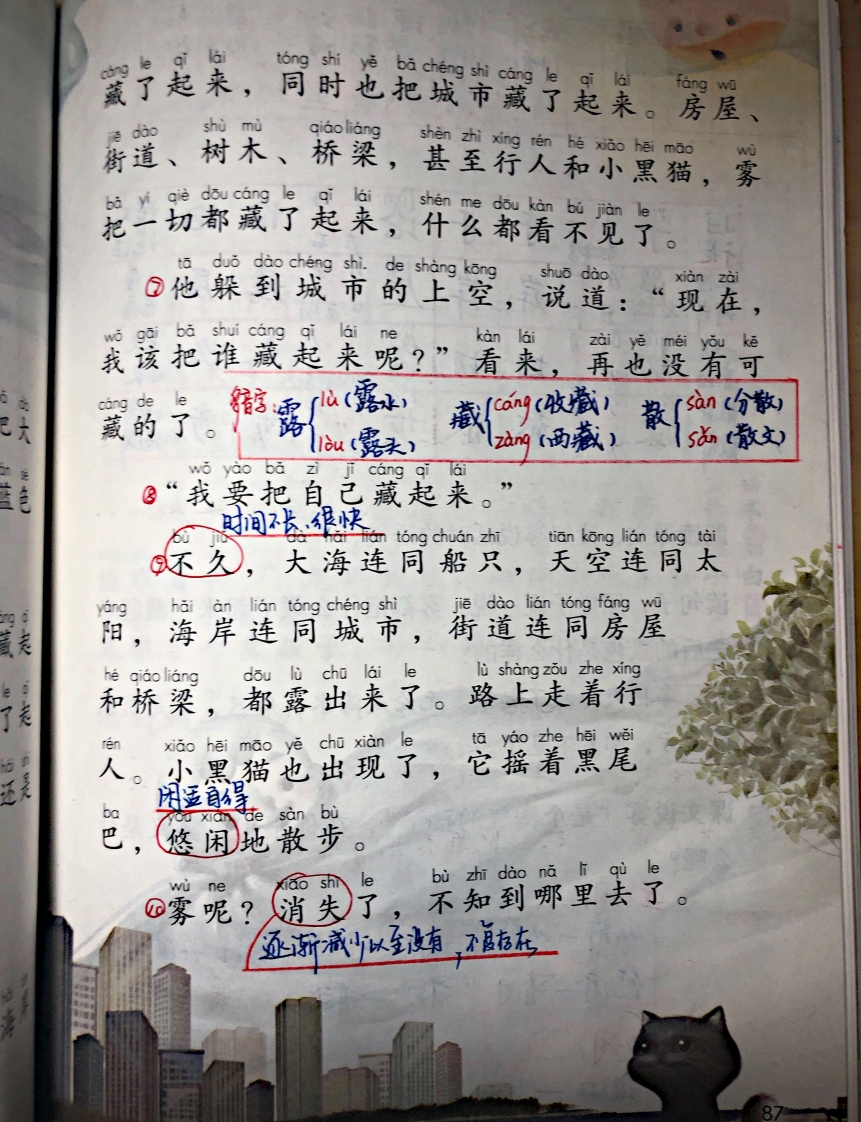 cáng le qǐ lái tóng shí yě bǎ chéng shì cáng le qǐ lái fáng wū
藏了起来，同时也把城市藏了起来。房屋、
jiē dào shù mù qiáo liáng shèn zhì xíng rén hé xiǎo hēi māo wù
街道、树木、桥梁，甚至行人和小黑猫，雾
bǎ yí qiè dōu cáng le qǐ lái shén me dōu kàn bú jiàn le
把一切都藏了起来，什么都看不见了。
tā duǒ dào chéng shì de shàng kōng shuō dào xiàn zài
⑦他躲到城市的上空，说道：“现在，
wǒ gāi bǎ shuí cáng qǐ lái ne kàn lái zài yě méi yǒu kě
我该把谁藏起来呢？”看来，再也没有可
cáng de le
藏的了。
露 lù（露水） lòu（露头） 藏 cáng（收藏） zàng（西藏） 散 sàn（分散） sǎn（散文）
wǒ yào bǎ zì jǐ cáng qǐ lái
⑧“我要把自己藏起来。”
时间不长、很快
bù jiǔ dà hǎi lián tóng chuán zhī tiān kōng lián tóng tài
⑨不久，大海连同船只，天空连同太
yáng hǎi àn lián tóng chéng shì jiē dào lián tóng fáng wū
阳，海岸连同城市，街道连同房屋
hé qiáo liáng dōu lù chū lái le lù shàng zǒu zhe xíng
和桥梁，都露出来了。路上走着行
rén xiǎo hēi māo yě chū xiàn le tā yáo zhe hēi wěi
人。小黑猫也出现了，它摇着黑尾
闲适自得
ba yōu xián de sàn bù
巴，悠闲地散步。
wù ne xiāo shī le bù zhī dào nǎ lǐ qù le
⑩雾呢？消失了，不知到哪里去了。
逐渐减少以至没有，不复存在
87